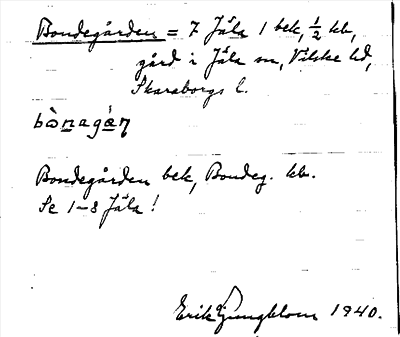 Bondegården = 7 Jäla 1 bek, ½ kb,
gård i Jäla sn, Vilske hd,
Skaraborgs l.
bònagán
Bondegården bek, Bondeg. kb.
Se 1-8 Jäla!
Erik Ljungblom 1940.